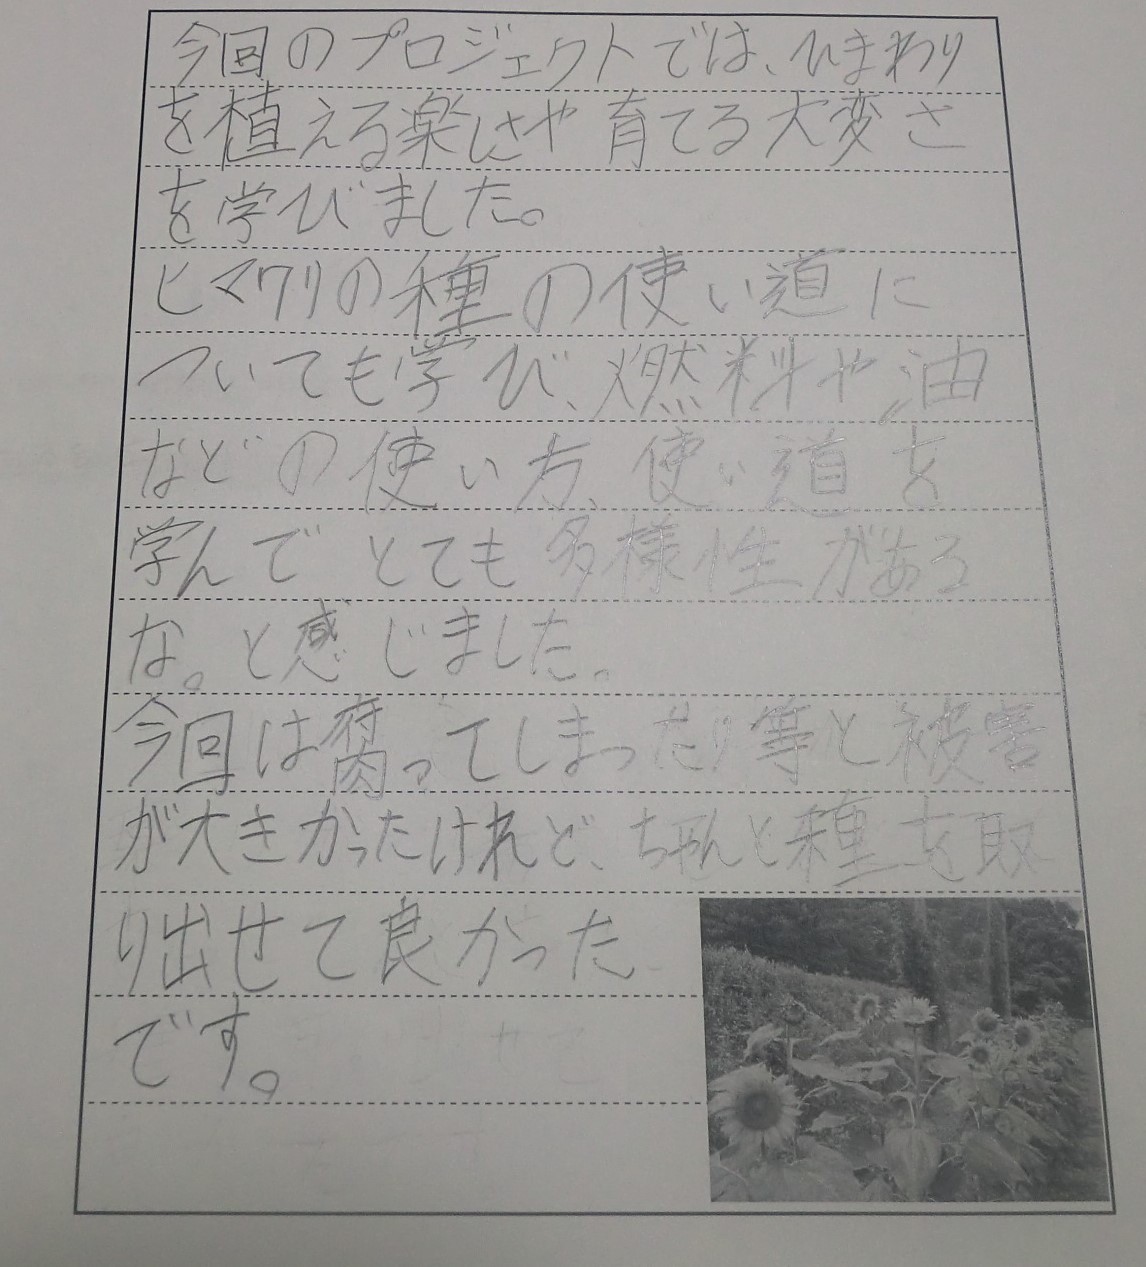 今回のプロジェクトでは、ひまわり
を植える楽しさや育てる大変さ
を学びました。
ヒマワリの種の使い道に
ついても学び、燃料や油
などの使い方、使い道を
学んでとても多様性がある
な。と感じました。
今回は腐ってしまったり等と被害
が大きかったけれど、ちゃんと種を取
り出せて良かった
です。